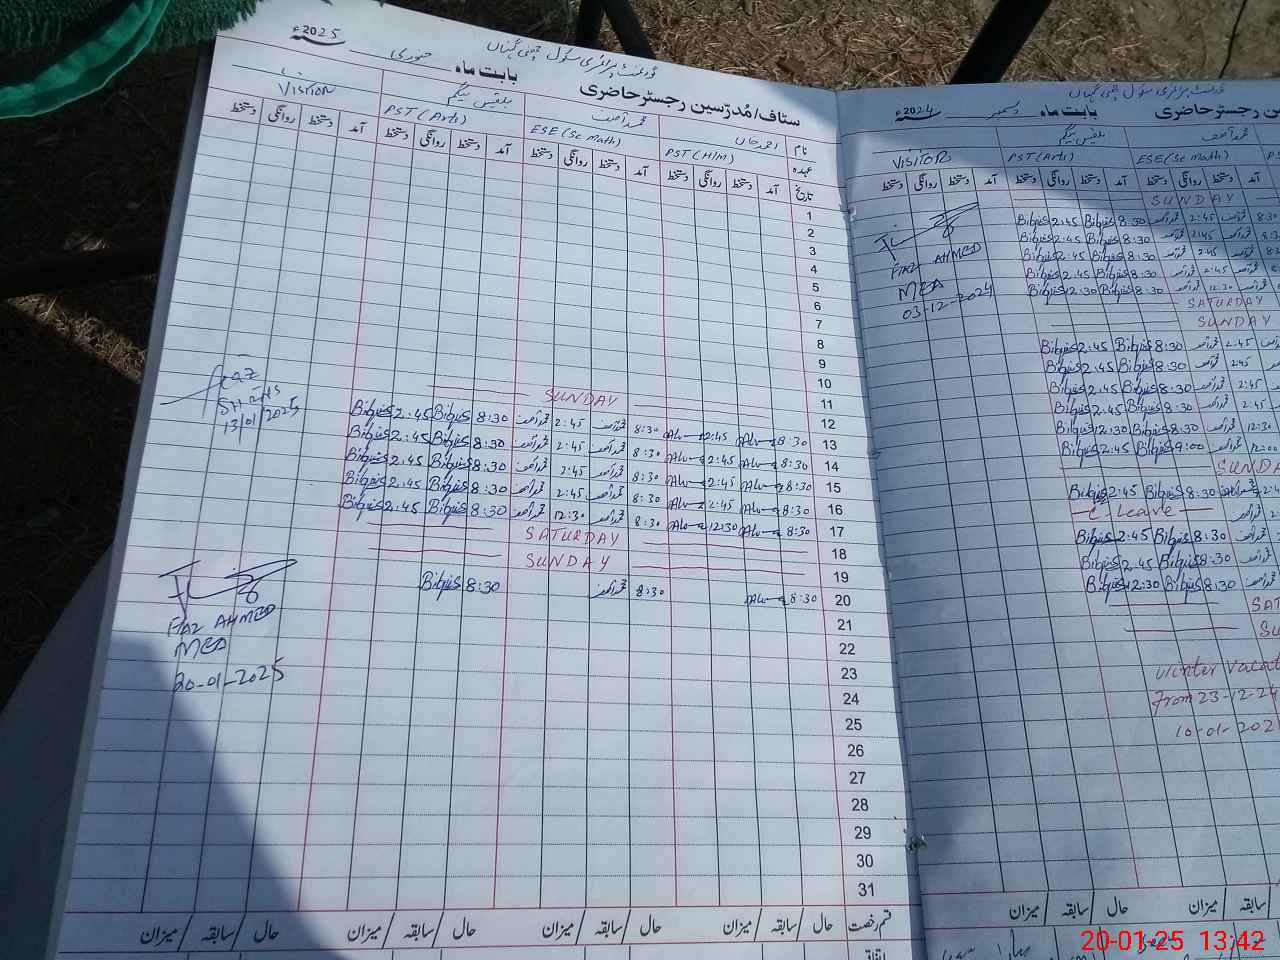 گورنمنٹ پرائمری سکول
سٹاف/مُدرّسین رجسٹر حاضری بابت ماہ جنوری 2025ء
نام احمد خان محمد آصف بلقیس بیگم
عہدہ PST (H/M) ESE (Sc Math) PST (Arts) VISITOR
تاریخ آمد دستخط روانگی دستخط آمد دستخط روانگی دستخط آمد دستخط روانگی دستخط آمد دستخط روانگی دستخط
1
2
3
4
5
6
7
8
9
10
11
12 SUNDAY
13 8:30 2:45 8:30 محمد آصف 2:45 محمد آصف 8:30 Bilqis 2:45 Bilqis
14 8:30 2:45 8:30 محمد آصف 2:45 محمد آصف 8:30 Bilqis 2:45 Bilqis
15 8:30 2:45 8:30 محمد آصف 2:45 محمد آصف 8:30 Bilqis 2:45 Bilqis
16 8:30 2:45 8:30 محمد آصف 2:45 محمد آصف 8:30 Bilqis 2:45 Bilqis
17 8:30 12:30 8:30 محمد آصف 12:30 محمد آصف 8:30 Bilqis 2:45 Bilqis
18 SATURDAY
19 SUNDAY
20 8:30 8:30 محمد آصف 8:30 Bilqis
21
22
23
24
25
26
27
28
29
30
31
13/01/2025
FIAZ AHMED
MEA
20-01-2025
قسم رخصت حال سابقہ میزان حال سابقہ میزان حال سابقہ میزان
اتفاقیہ
رجسٹر حاضری بابت ماہ دسمبر 2024ء
محمد آصف بلقیس بیگم
ESE (Sc Math) PST (Arts) VISITOR
آمد دستخط روانگی دستخط آمد دستخط روانگی دستخط آمد دستخط روانگی دستخط
SUNDAY
2:45 محمد آصف 8:30 Bilqis 2:45 Bilqis
2:45 محمد آصف 8:30 Bilqis 2:45 Bilqis
2:45 محمد آصف 8:30 Bilqis 2:45 Bilqis
2:45 محمد آصف 8:30 Bilqis 2:45 Bilqis
12:30 محمد آصف 8:30 Bilqis 12:30 Bilqis
SATURDAY
SUNDAY
2:45 محمد آصف 8:30 Bilqis 2:45 Bilqis
2:45 محمد آصف 8:30 Bilqis 2:45 Bilqis
2:45 محمد آصف 8:30 Bilqis 2:45 Bilqis
2:45 محمد آصف 8:30 Bilqis 2:45 Bilqis
12:30 محمد آصف 8:30 Bilqis 12:30 Bilqis
12:00 محمد آصف 9:00 Bilqis 2:45 Bilqis
SUNDA
8:30 Bilqis 2:45 Bilqis
Leave
8:30 Bilqis 2:45 Bilqis
8:30 Bilqis 2:45 Bilqis
8:30 Bilqis 12:30 Bilqis
SAT
SU
Winter Vacat
From 23-12-24
10-01-202
FIAZ AHMED
MEA
03-12-2024
سابقہ میزان حال سابقہ میزان
20-01-25 13:42